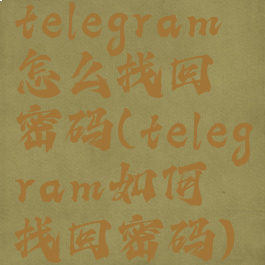 telegram
怎么找回
密码(teleg
ram如何
找回密码)